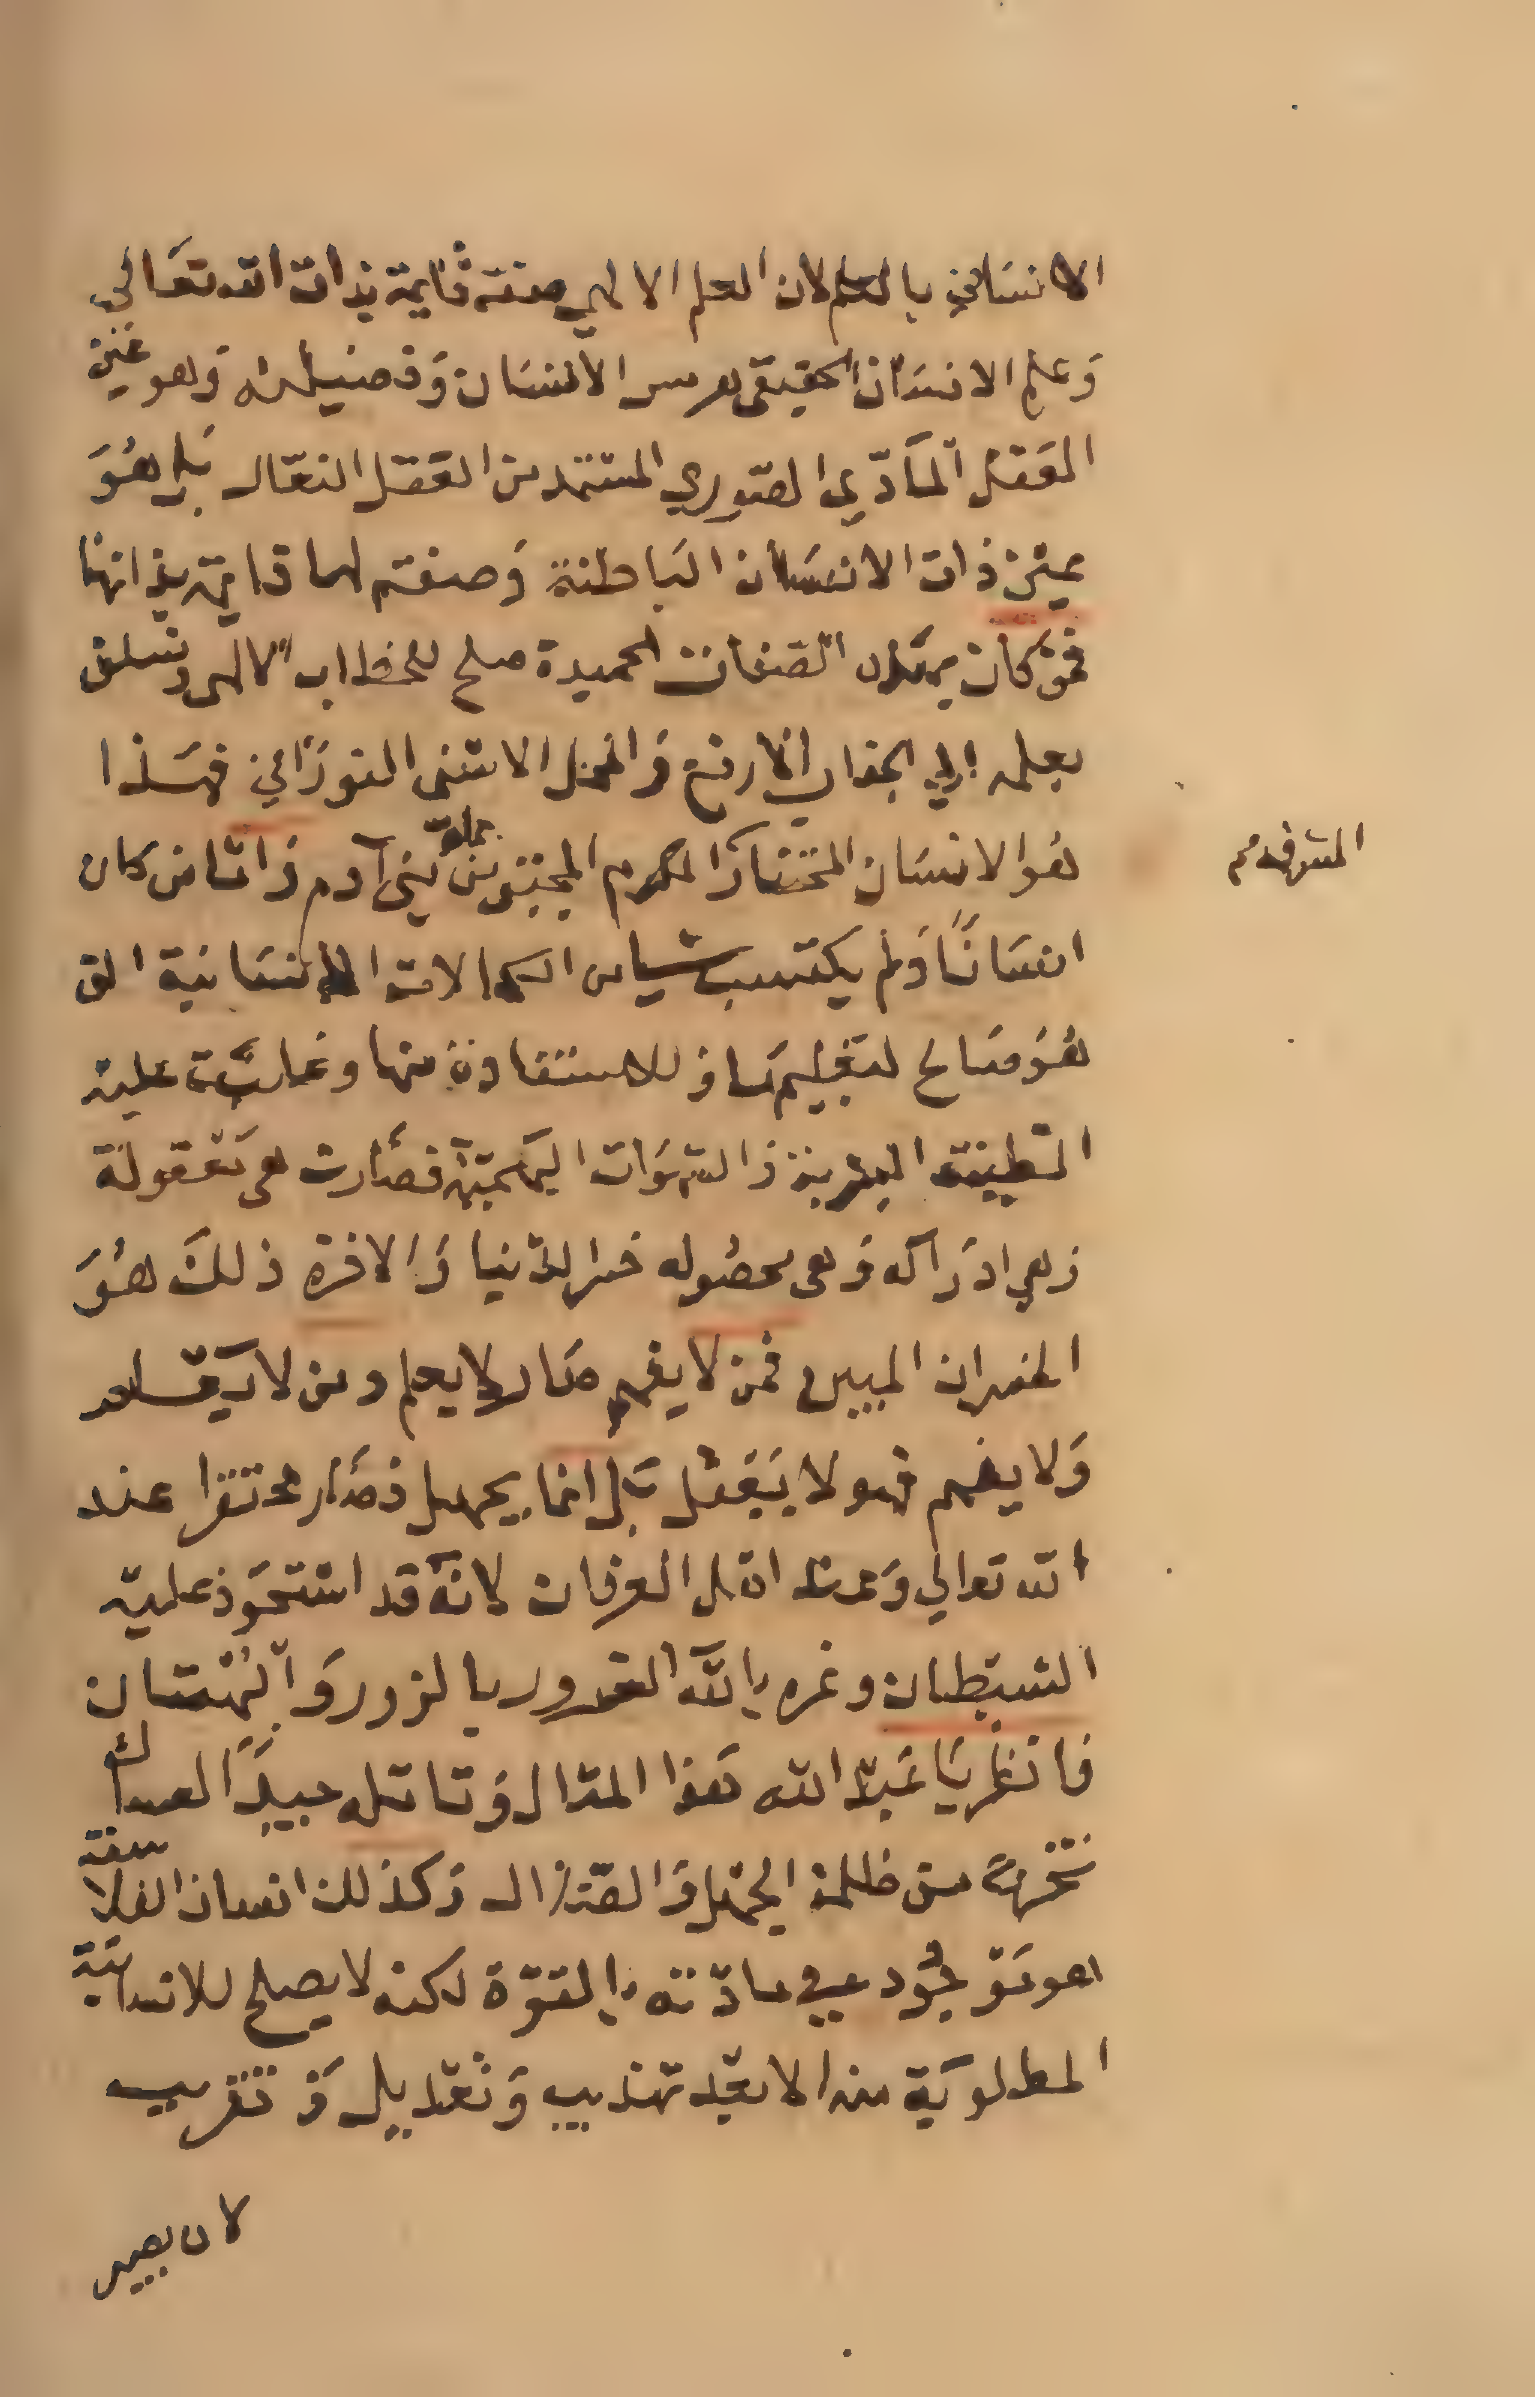 الانساني بالعلم لان العلم الالهي صفة قايمة بذات الله تعالى
وَعلم الانسان الحقيقي هو سر الانسَان وَفضيلته وَهو عَين
العَقل المآدّي الصّوري المستمّد من العَقل الفعّال بَل هُوَ
عين ذات الانسَان البَاطنة وَصفته لها قايمة بذاتها
فمن كان بهَذه الصّفات الحميدة صلح للخطاب الالهي وتسلق
بعلمه الي الجناب الارفع وَالمحل الاسنى النورَاني فهَذا
هوَ الانسَان المختار المكرم المجتبى من جملة بَني آدم وَامّا من كان
المشرف
انسَانًا وَلم يكتسب شيا من الكمالات الانسَانية التي
هُوَ صَالح لتعليمهَا وَللاستفادة منها وغَلبَت عليه
الطّينة البشرية وَالشهوَات البهيميّة فصَارت هي مَعقولة
وَهي ادرَاكه وَهي محصُوله خسر الدّنيا وَالاخرة ذلكَ هُوَ
الخسران المبين فمن لا يفهم صَار لا يعلم ومن لا يَعلم
وَلا يفهم فهو لا يَعقل بَل انما يجهل فصَار محتقرا عند
الله تعالي وَعند اهل العرفان لانّه قد استحَوذ عليه
الشيطان وغره بالله الغرور بالزور وَالبُهتان
فانظر يَا عَبد الله هَذا المثال وَتامّله جيدًا لعساك
تخرج من ظلمة الجهل وَالضّلال وَكذلك انسان الفلاسفة
هو موَجُود في مادّته بالقوّة لكنه لا يصلح للانسانيّة
المطلوبَة منه الا بعَد تهذيب وَتعَديل وَتقريب
لان يصير